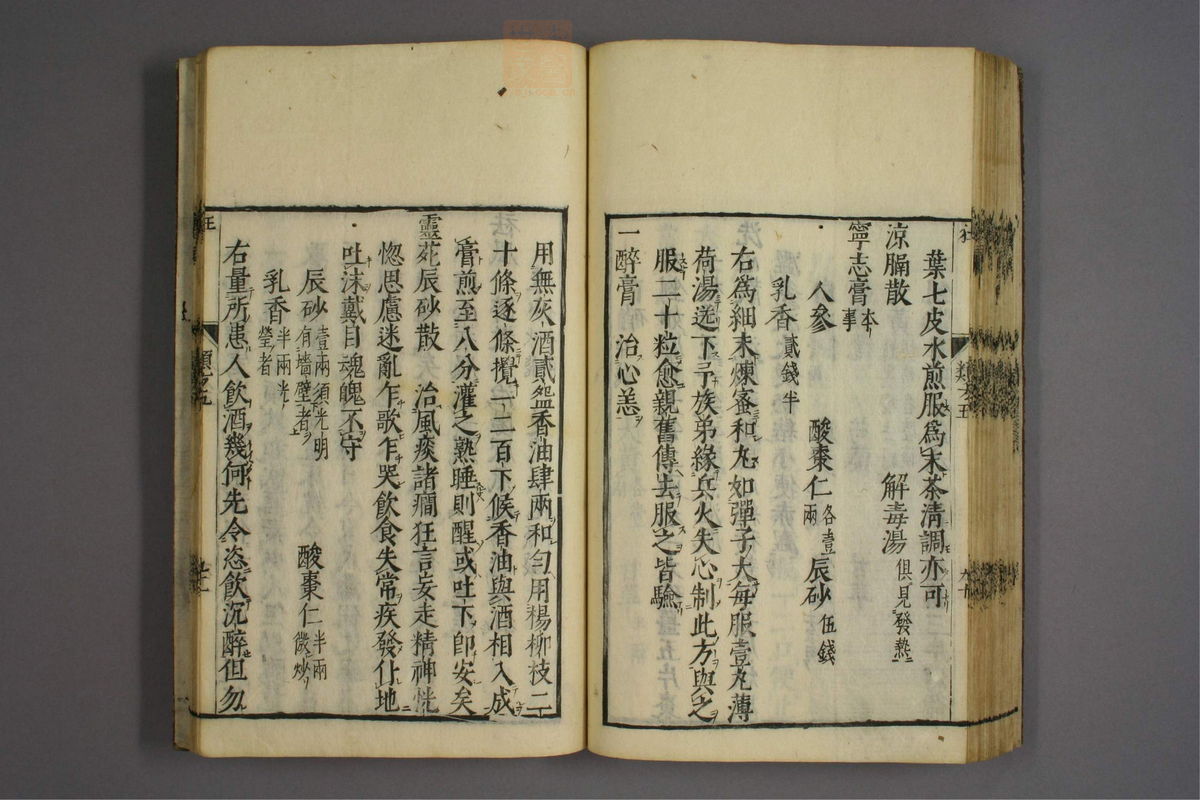 葉七皮水煎服為末茶清調亦可
涼膈散 解毒湯 俱見發熱
寧志膏 本事
人參 酸棗仁 各壹兩 辰砂 伍錢
乳香 貳錢半
右為細末煉蜜和丸如彈子大每服壹丸薄
荷湯送下予族弟緣兵火失心制此方與之
服二十粒愈親舊傳去服之皆驗
一醉膏 治心恙
用無灰酒貳盌香油肆兩和勻用楊柳枝二
十條逐條攪一二百下候香油與酒相入成
膏煎至八分灌之熟睡則醒或吐下即安矣
靈苑辰砂散 治風痰諸癇狂言妄走精神恍
惚思慮迷亂乍歌乍哭飲食失常疾發仆地
吐沫戴目魂魄不守
辰砂 壹兩須光明有墻壁者 酸棗仁 半兩微炒
乳香 半兩光瑩者
右量所患人飲酒幾何先令恣飲沉醉但勿